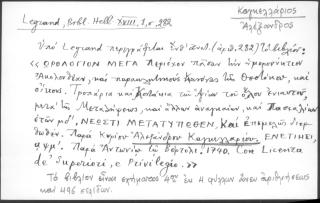 Legrand, Bibl. Hell. XVIII, 1, σ. 282
Καγκελλάριος
Ἀλέξανδρος
Ὑπὸ Legrand περιγράφεται ὑπ' ἀριθ. (ἀρ. 282) τὸ βιβλίον:
«ΩΡΟΛΟΓΙΟΝ ΜΕΓΑ Περιέχον πᾶσαν τὴν ἡμερονύκτιον
Ἀκολουθίαν, καὶ παρακλητικοὺς Κανόνας τῆς Θεοτόκου, καὶ
οἴκους. Τροπάρια καὶ Κοντάκια τῶν Ἁγίων τοῦ ὅλου ἐνιαυτοῦ,
μετὰ τῆς Μεταλήψεως, καὶ ἄλλων ἀναγκαίων, καὶ Πασχαλίων
ΝΕΩΣΤΙ ΜΕΤΑΤΥΠΩΘΕΝ, Καὶ ἐπιμελῶς διορ-
θωθέν. Παρὰ Κυρίου Ἀλεξάνδρου Καγκελλαρίου. ΕΝΕΤΙΗΣΙ,
αψμ'. Παρὰ Ἀντωνίῳ τῷ Βόρτολι, 1740. Con Licenza
de' Superiori, e Privilegio.»
Τὸ βιβλίον εἶναι σχήματος 4ον ἐκ 4 φύλλων ἄνευ ἀριθμήσεως
καὶ 496 σελίδων.